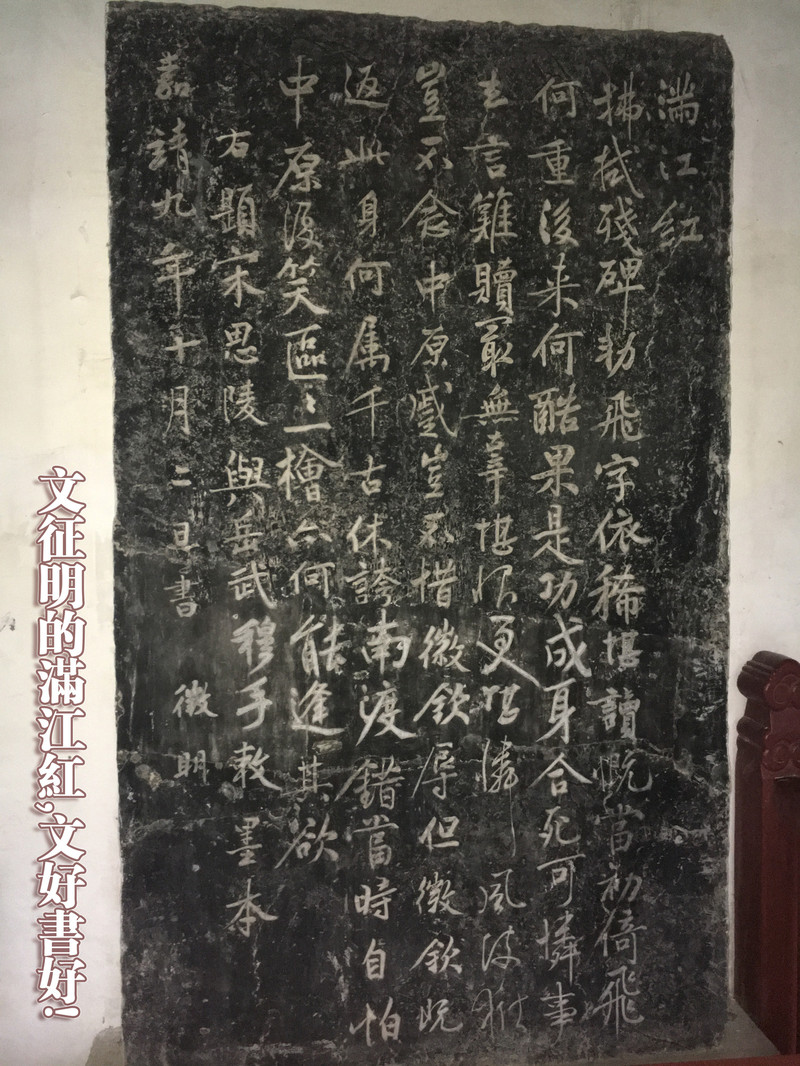 滿江紅
拂拭殘碑勅飛字依稀堪讀慨當初倚飛
何重後来何酷果是功成身合死可憐事
去言難贖最無辜堪恨更堪憐風波獄
豈不念中原蹙豈不惜徽欽辱但徽欽既
返此身何属千古休誇南渡錯當時自怕
中原復笑區〻一檜亦何能逢其欲
右題宋思陵與岳武穆手敕墨本
嘉靖九年十月二日書 徵明
文征明的滿江紅,文好書好!